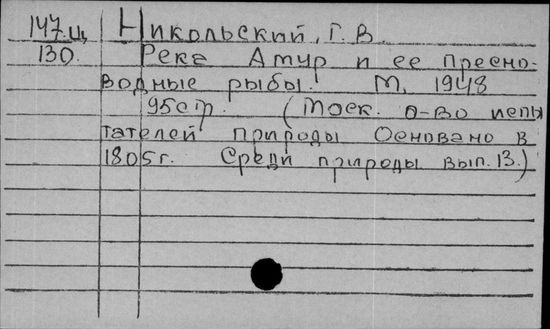 147.Ц Никольский, Г. В.
130. Река Амур и ее пресно-
водные рыбы. М, 1948
95стр. (Моск. о-во испы
тателей природы Основано в
1805г. Среди природы вып. 13.)